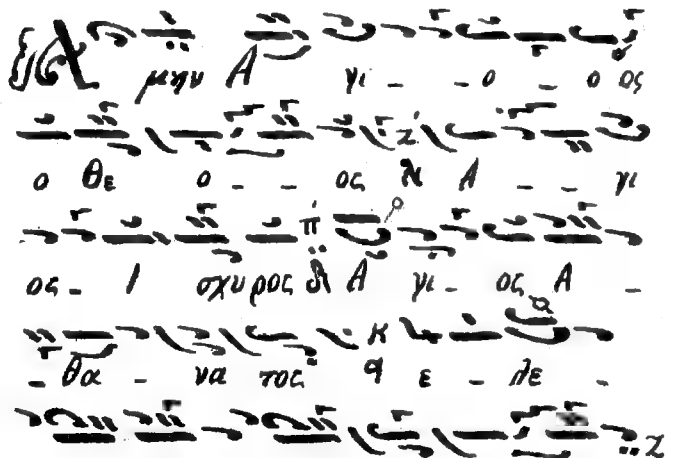 μην Α γι _ _ ο _ ο ος
ο Θε ο _ _ ος Α _ _ γι
ος _ Ι σχυρος Α γι _ ος Α _
_ θα _ να τος ε _ λε _